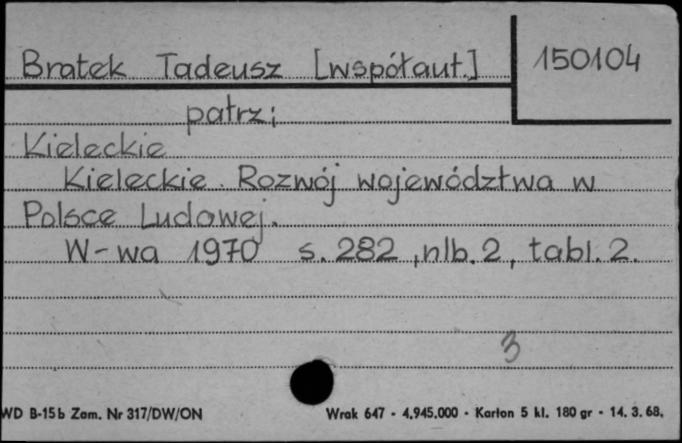 Bratek Tadeusz [współaut.] 150104
patrz:
Kieleckie
Kieleckie. Rozwój województwa w
Polsce Ludowej.
W-wa 1970 s. 282, nlb. 2, tabl. 2.
3
WD B-15b Zam. Nr 317/DW/ON Wrak 647 - 4.945.000 - Karton 5 kl. 180 gr - 14. 3. 68.